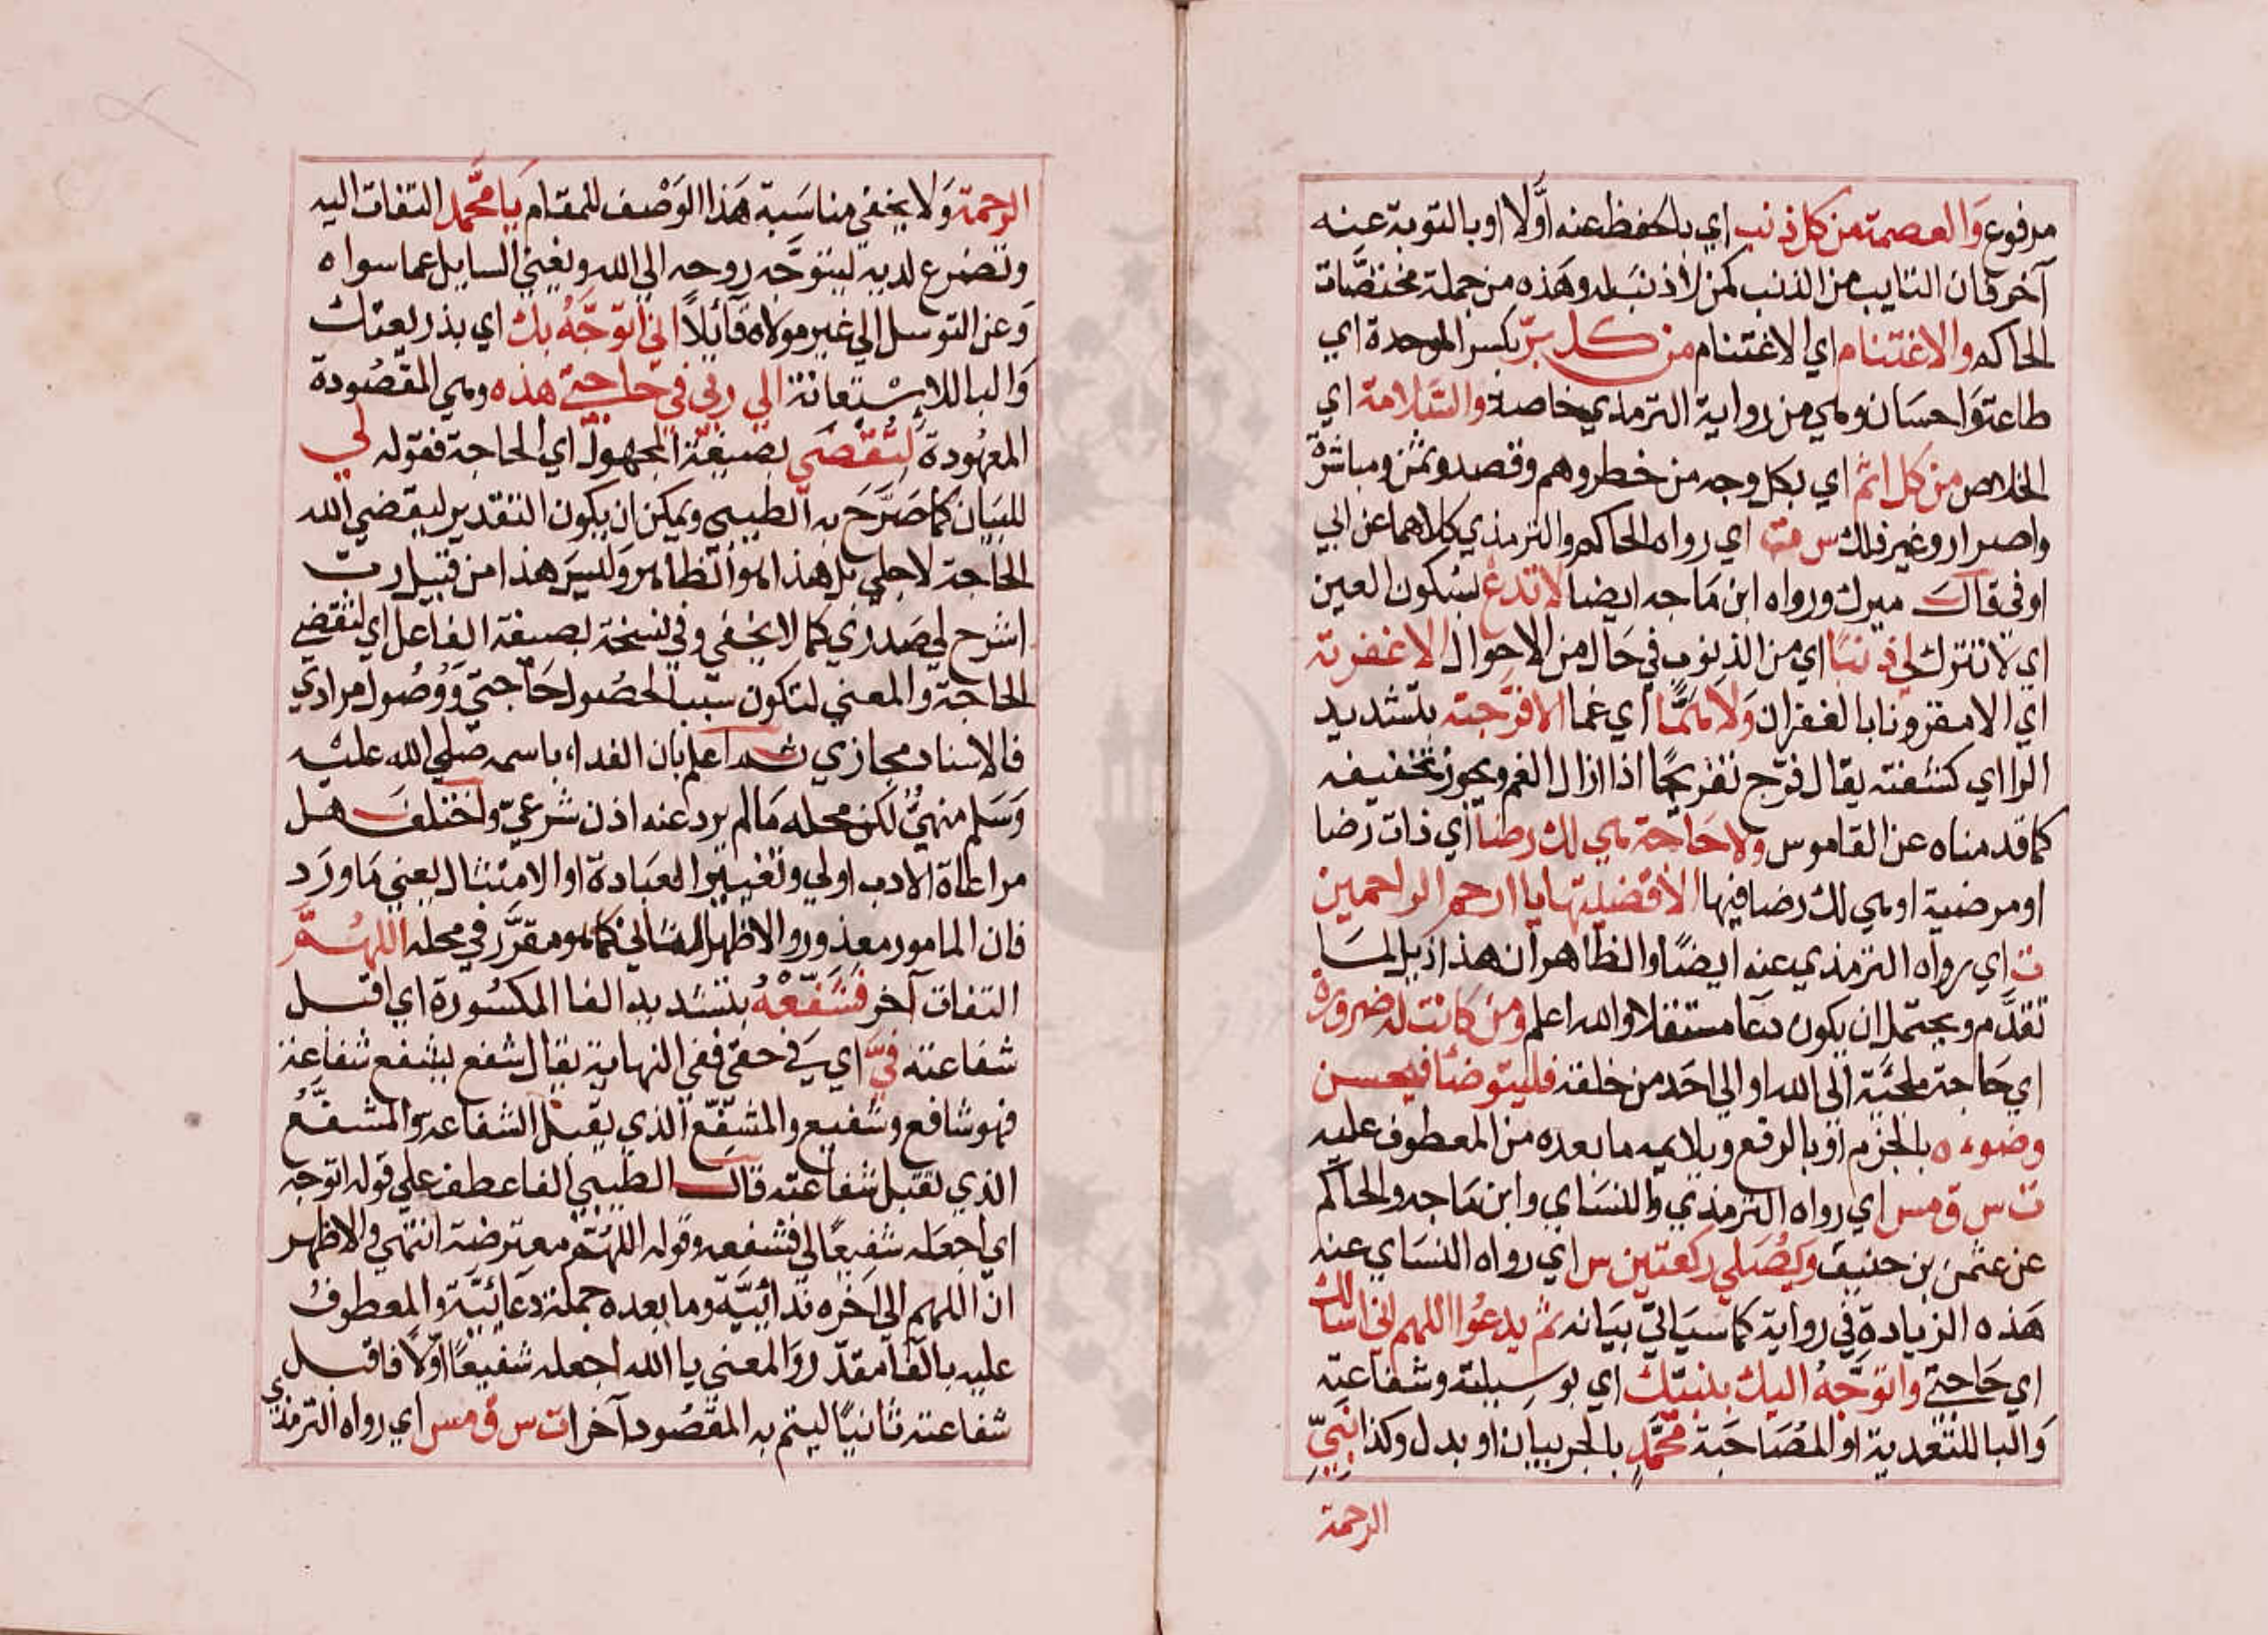 مرفوع وَالعصمة من كل ذنب اي بالحفظ عنه اوَّلا او بالتوبة عنه
آخر فان التايب من الذنب كمن لا ذنب له وهذه من جملة مختصّات
الحاكم والاغتنام اي الاغتنام من كل برّ بكسر الموحدة اي
طاعة وَاحسَان وهي من رواية الترمذي خاصة والسَّلامة اي
الخلاص من كل اثم اي بكل وجه من خطر وهم وقصد وثمن ومباشرة
واصرار وغير ذلك س مت اي رواه الحاكم والترمذي كلاهما عن ابي
اوفى قال ميرك ورواه ابن مَاجه ايضا لا تدعْ بسُكون العين
اي لا تترك لي ذنبًا اي من الذنوب في حَال من الاحوال الا غفرته
اي الا مقرونا بالغفران وَلا همًّا اي غما الا فرّجته بتشديد
الرا اي كشفته يقال فرّج تفريجًا اذا ازال الغم ويجوز تخفيفه
كما قدمناه عن القاموس ولا حَاجة هي لك رضا اي ذات رضا
او مرضية او هي لك رضا فيها الا قضيتها يا ارحم الراحمين
ت اي رواه الترمذي عنه ايضًا والظاهر ان هذا ذيل لما
تقدَّم ويحتمل ان يكون دعَا مستقلا والله اعلم ومن كانت له ضرورة
اي حَاجة ملجئَة الى الله او الي احَد من خلقه فليتوضأ فيحسن
وضوءه بالجزم او بالرفع ويلايمه ما بعده من المعطوف عليه
ت س ق مس اي رواه الترمذي والنسَاي وابن مَاجه والحاكم
عن عثمن بن حنيف وَيُصَلي ركعتين س اي رواه النسَاي عنه
هَذه الزيادة في رواية كما سَيَاتي بيَانه ثم يدعُوا اللهم اني اسالك
اي حَاجتي واتوَجَّهُ اليك بنبيّك اي بوسيلته وشفاعته
وَالبا للتعدية او المُصَاحَبة محَمَّدٍ بالجر بيان او بدل وكذا نبيّ
الرحمة
الرحمة وَلا يخفي مناسَبة هَذا الوَصْف للمقام يَا محَمَّد التفات اليه
وتضرع لديه ليتوَجَّه روحه الي الله ويغني السايل عما سواه
وَعن التوسل الي غير مولاه قائلاً اني اتوَجَّهُ بك اي بذريعتك
وَالبا للاسْتعانة الي ربي في حَاجتي هذه وهي المقصُودة
المعهُودة لتُقضَى بصيغة المجهول اي الحاجة فقوله لي
للبيَان كما صَرَّحَ به الطيبي ويمكن ان يكون التقدير ليقضي الله
الحاجة لاجلي بل هذا هو الظاهر وَليسَ هذا من قبيل رب
اشرح لي صَدري كما لا يخفي وفي نسخة بصيغة الفاعل اي لتقضي
الحاجة والمعني لتكون سببا لحصُول حَاجتي وَوُصُول مرادي
فالاسناد مجازي ثم اعلم بان الندا باسمه صَلي الله عليْه
وَسَلم منهيٌّ لكن محله مَا لم يرد عنه اذن شرعيّ واختلف هل
مراعاة الادب اولي وتغيير العبَادة او الامتثال يعني مَا ورَد
فان المامور معذور والاظهر الثاني كما هو مقرَّر في محله اللهُمَّ
التفات آخر فشَفّعْهُ بتشديد الفا المكسُورة اي اقبل
شفاعته فيَّ اي في حقي ففي النهاية يقال شفع يشفع شفاعة
فهو شافع وشفيع والمشَفِّع الذي يقبل الشفاعه والمشفَّع
الذي تقبل شفاعته قال الطيبي الفا عطف علي قوله اتوجه
اي اجعَله شفيعًا لي فشفعه وقوله اللهُمَّ معترضة انتهي والاظهر
ان اللهم الي آخره ندائيَّة وما بعده جملة دعَائيّة والمعطوف
عليه بالفا مقدّر وَالمعني يا الله اجعله شفيعًا اوّلا فاقبل
شفاعته ثانيًا ليتم به المقصُود آخرا ت س ق مس اي رواه الترمذي